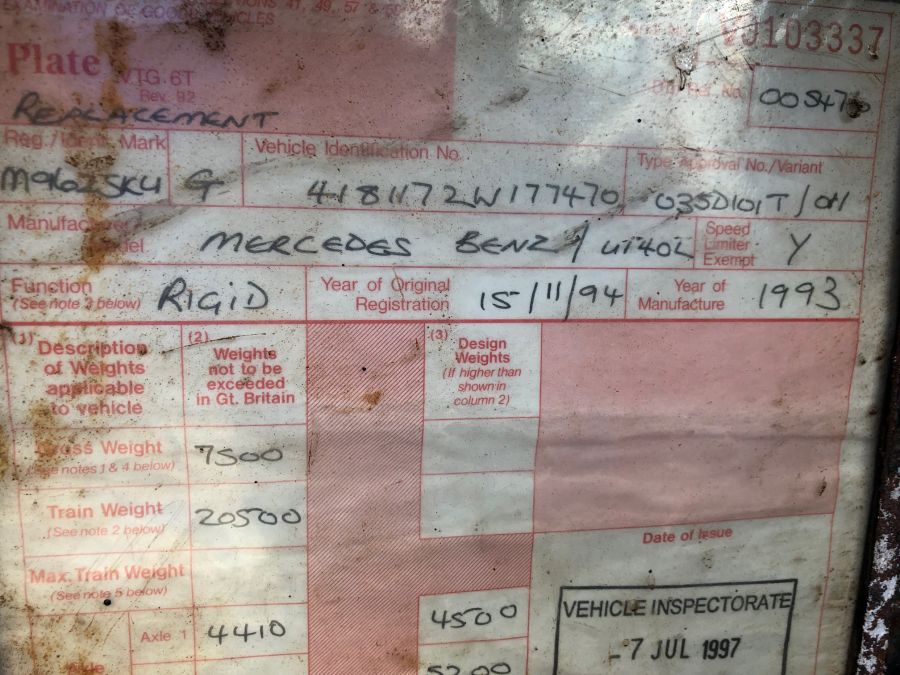 41, 49, 57 &
EXAMINATION OF GOODS VEHICLES
V0103337
Plate
VTG 6T
Rev. 92
No.
REPLACEMENT
Reg./Ident. Mark
G
Vehicle Identification No.
4181172W177470
Type Approval No./Variant
Manufacturer
MERCEDES BENZ / U140L
Speed
Limiter
Exempt
Y
Function
(See note 3 below)
RIGID
Year of Original
Registration
15/11/94
Year of
Manufacture
1993
(1)
Description
of Weights
applicable
to vehicle
(2)
Weights
not to be
exceeded
in Gt. Britain
(3)
Design
Weights
(If higher than
shown in
column 2)
Gross Weight
(See notes 1 & 4 below)
7500
Train Weight
(See note 2 below)
20500
Date of Issue
Max. Train Weight
(See note 5 below)
VEHICLE INSPECTORATE
- 7 JUL 1997
Axle 1
4410
4500
Axle
5200